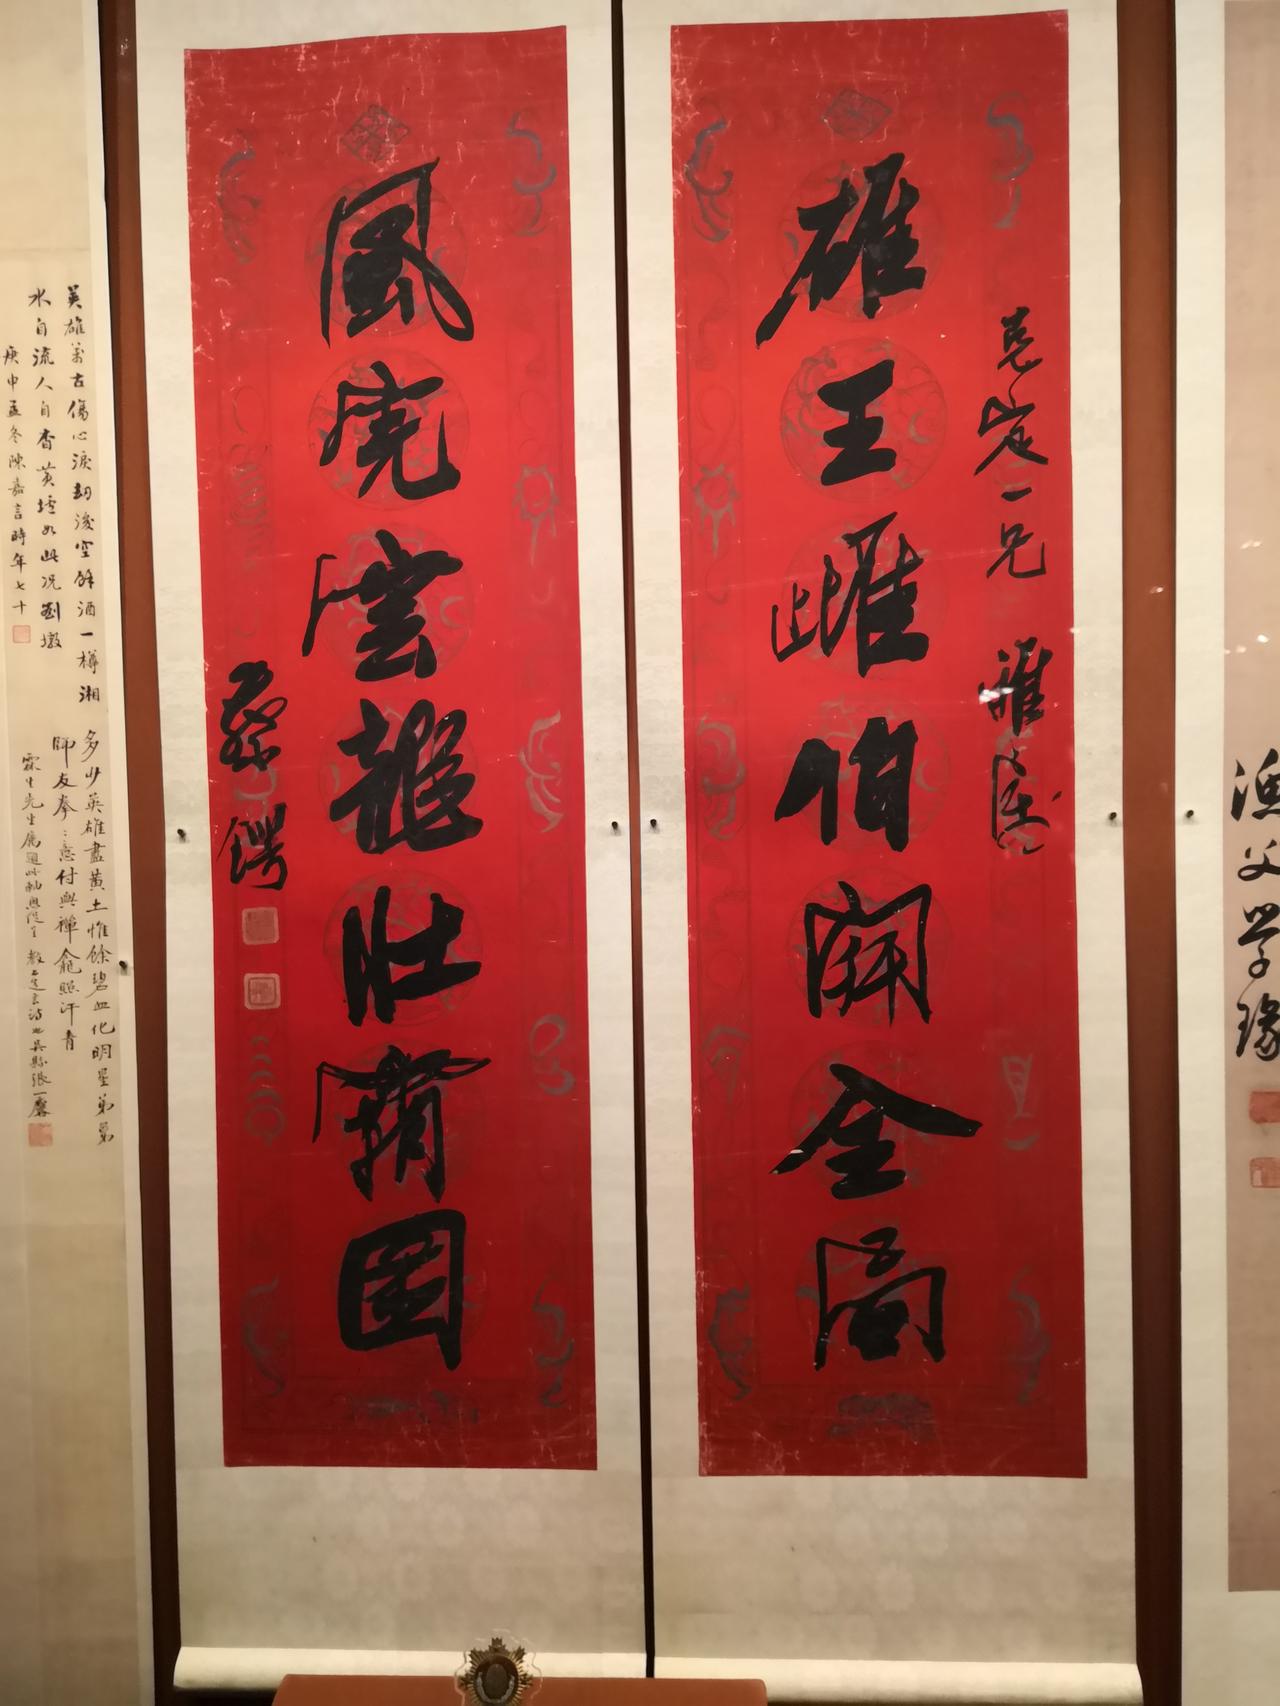 漁父學
克定一兄 雅屬
雄王雌伯開全局
風虎雲龍壯霸圖
蔡鍔
英雄萬古傷心淚劫後空餘酒一樽湘
水自流人自杳黃壚如此況劉墩
庚申孟冬陳嘉言時年七十
多少英雄盡黃土惟餘碧血化明星弟
師友拳：意付與禪龕照汗青
霖生先生屬題此軸 吳縣張一麐